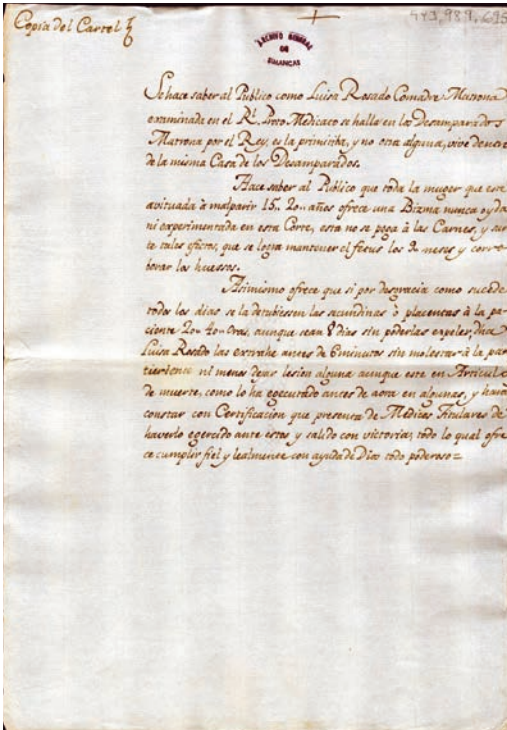 Copia del Cartel
443,989,695
ARCHIVO GENERAL
DE
SIMANCAS
Se hace saber al Publico como Luisa Rosado Comadre Matrona
examinada en el Rl. Proto Medicato se halla en los Desamparados
Matrona por el Rey, es la primitiba, y no otra alguna, vive dentro
de la misma Casa de los Desamparados.
Hace saber al Publico que toda la muger que esté
avituada à malparir 15.. 20.. años ofrece una Bizma nunca oyda
ni experimentada en esta Corte, esta no se pega à las Carnes, y sur
te tales efectos, que se logra mantener el fetus los 9 meses y corro
borar los huessos.
Asimismo ofrece que si por desgracia como sucede
todos los dias se la detubiesen las secundinas ò placentas à la pa
ciente 20.. 40.. oras, aunque sean 8 dias sin poderlas expeler, dice
Luisa Rosado las extrahe antes de 6 minutos sin molestar à la par
turiente ni menos dejar lesion alguna aunque esté en Articulo
de muerte, como lo ha egecutado antes de aora en algunas, y hará
constar con Certificacion que presenta de Médicos titulares de
haverlo egercido ante estos y salido con victorias, todo lo qual ofre
ce cumplir fiel y lealmente con ayuda de Dios todo poderoso=